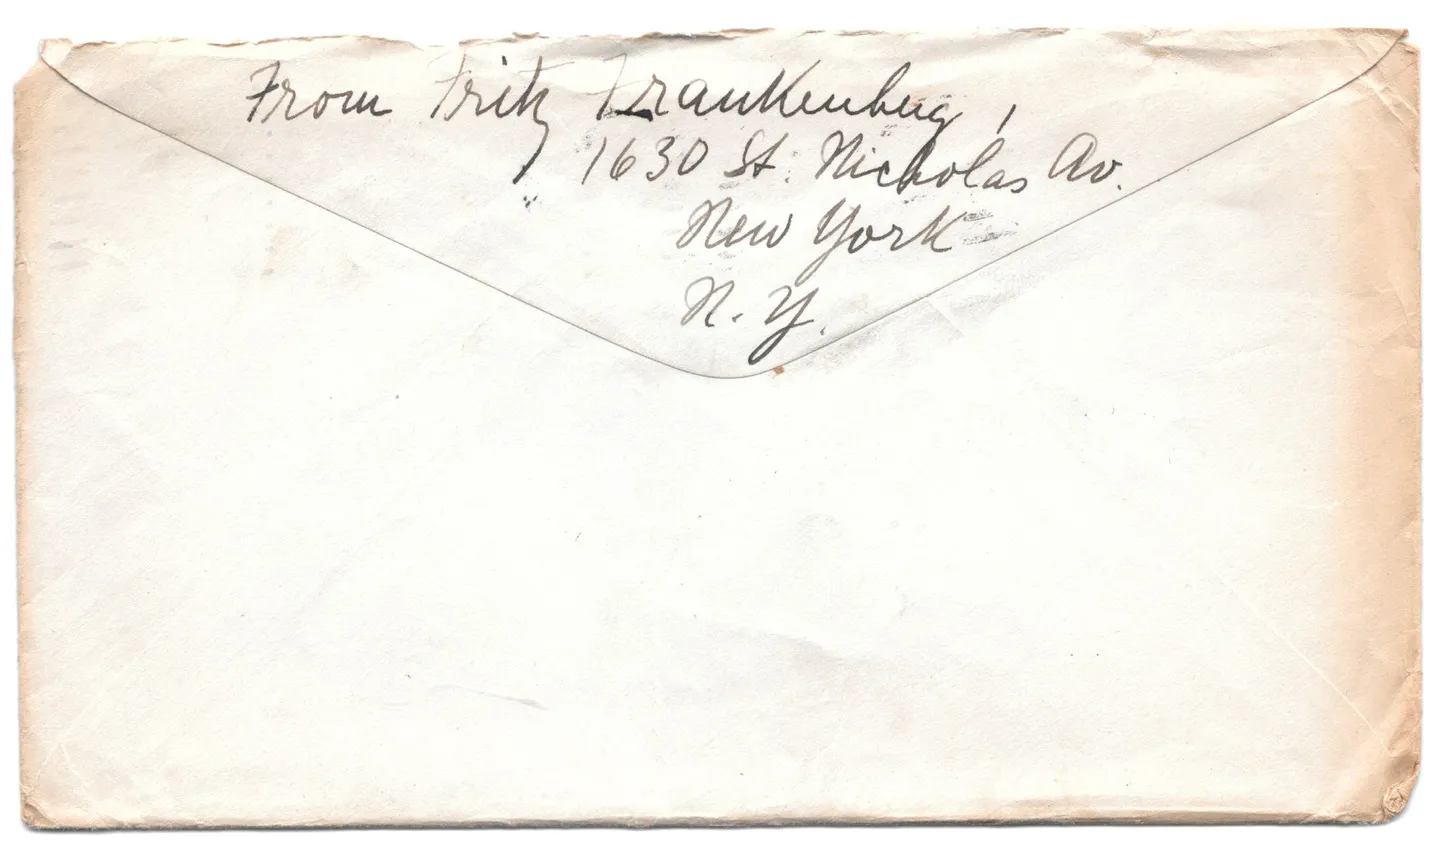 From Fritz Frankenberg,
1630 St. Nicholas Av.
New York
N. Y.